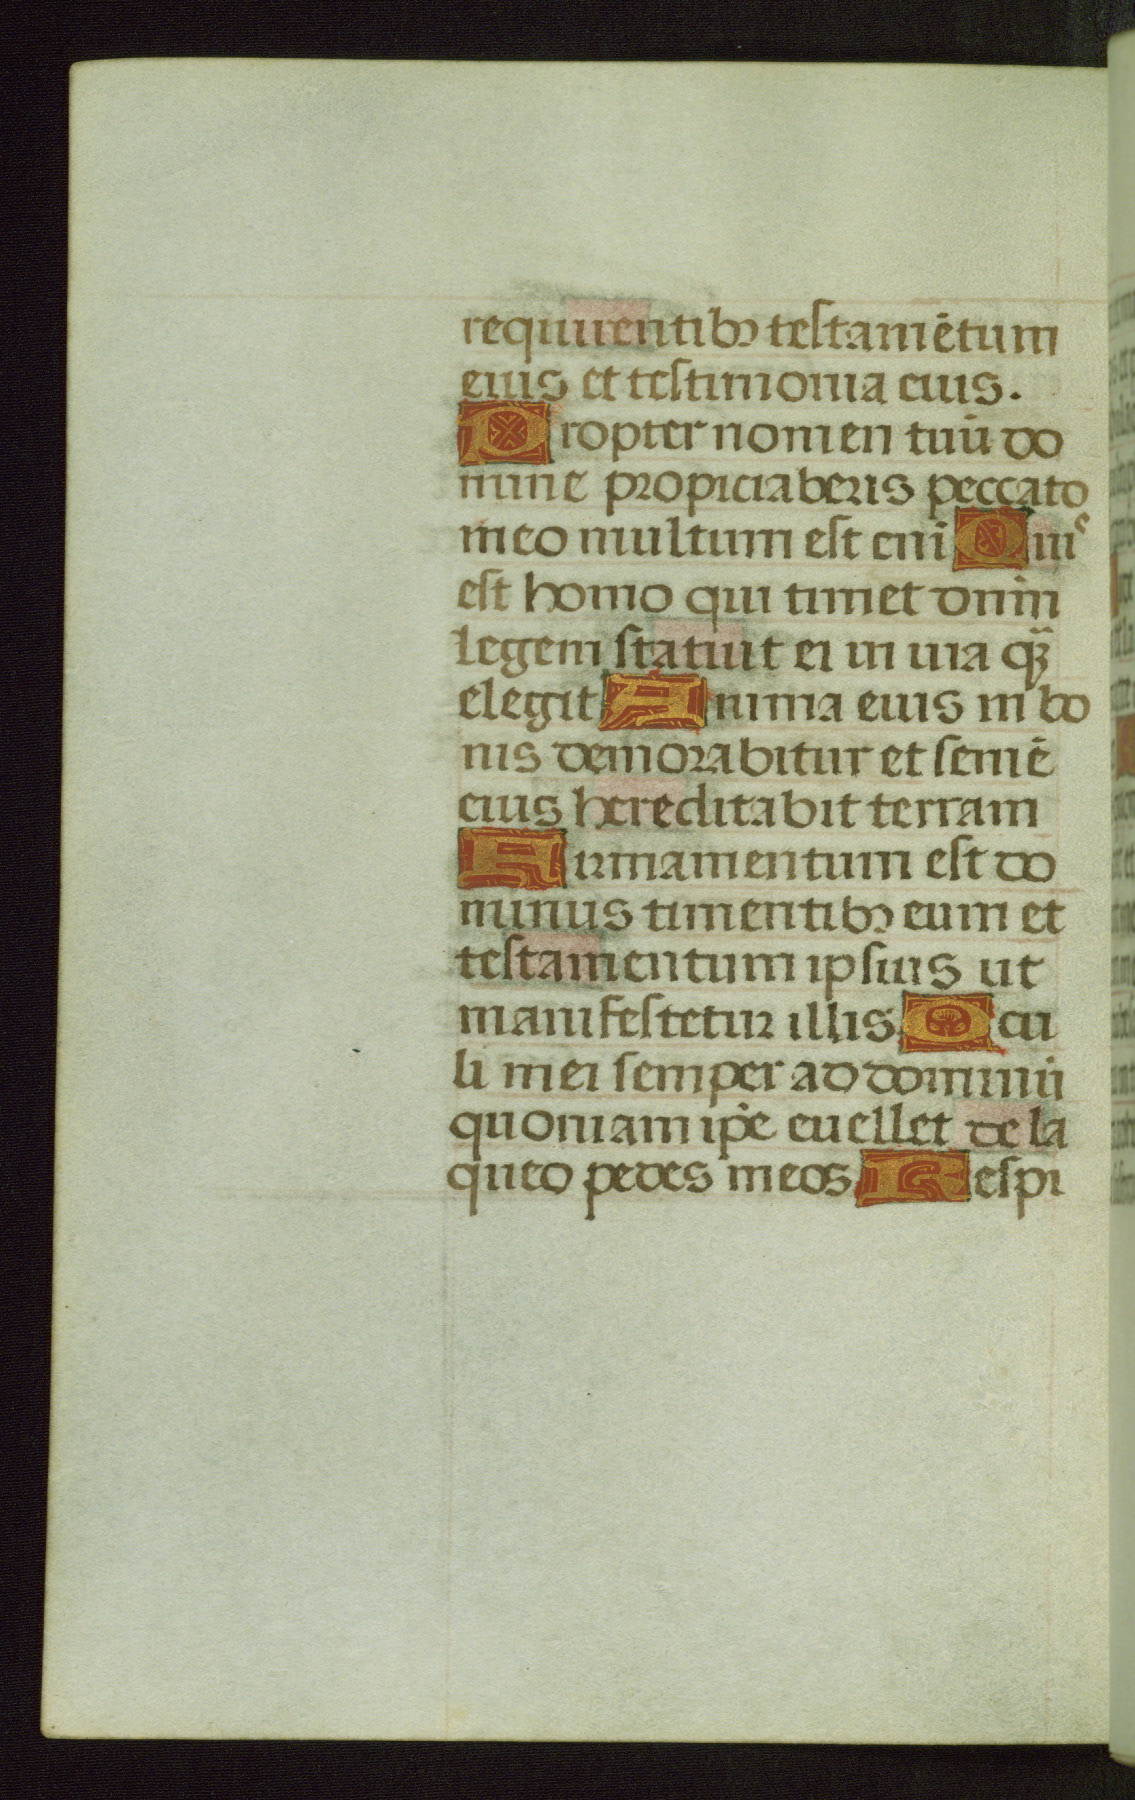 requirentibꝫ testamētum
eius et testimonia eius.
Propter nomen tuū do
mine propiciaberis peccato
meo multum est eni Quis
est homo qui timet dnm̄
legem statuit ei in uia qꝫ̄
elegit Anima eius in bo
nis demorabitur et semē
eius hereditabit terram
Firmamentum est do
minus timentibꝫ eum et
testamentum ipsius ut
manifestetur illis Ocu
li mei semper ad dominū
quoniam ipe euellet de la
queo pedes meos Respi